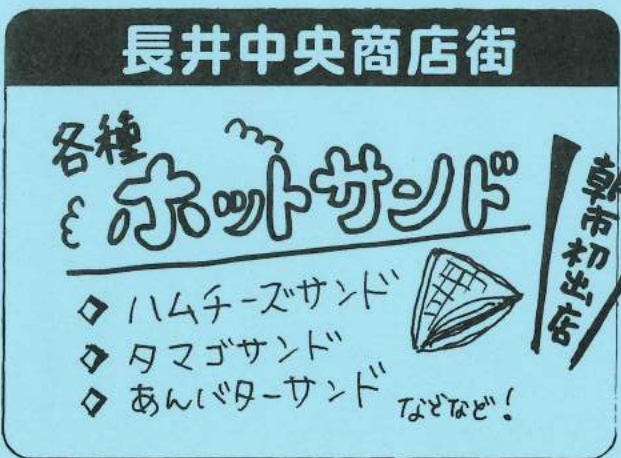 長井中央商店街
各種
ホットサンド
朝市初出店
◇ ハムチーズサンド
◇ タマゴサンド
◇ あんバターサンド
などなど!